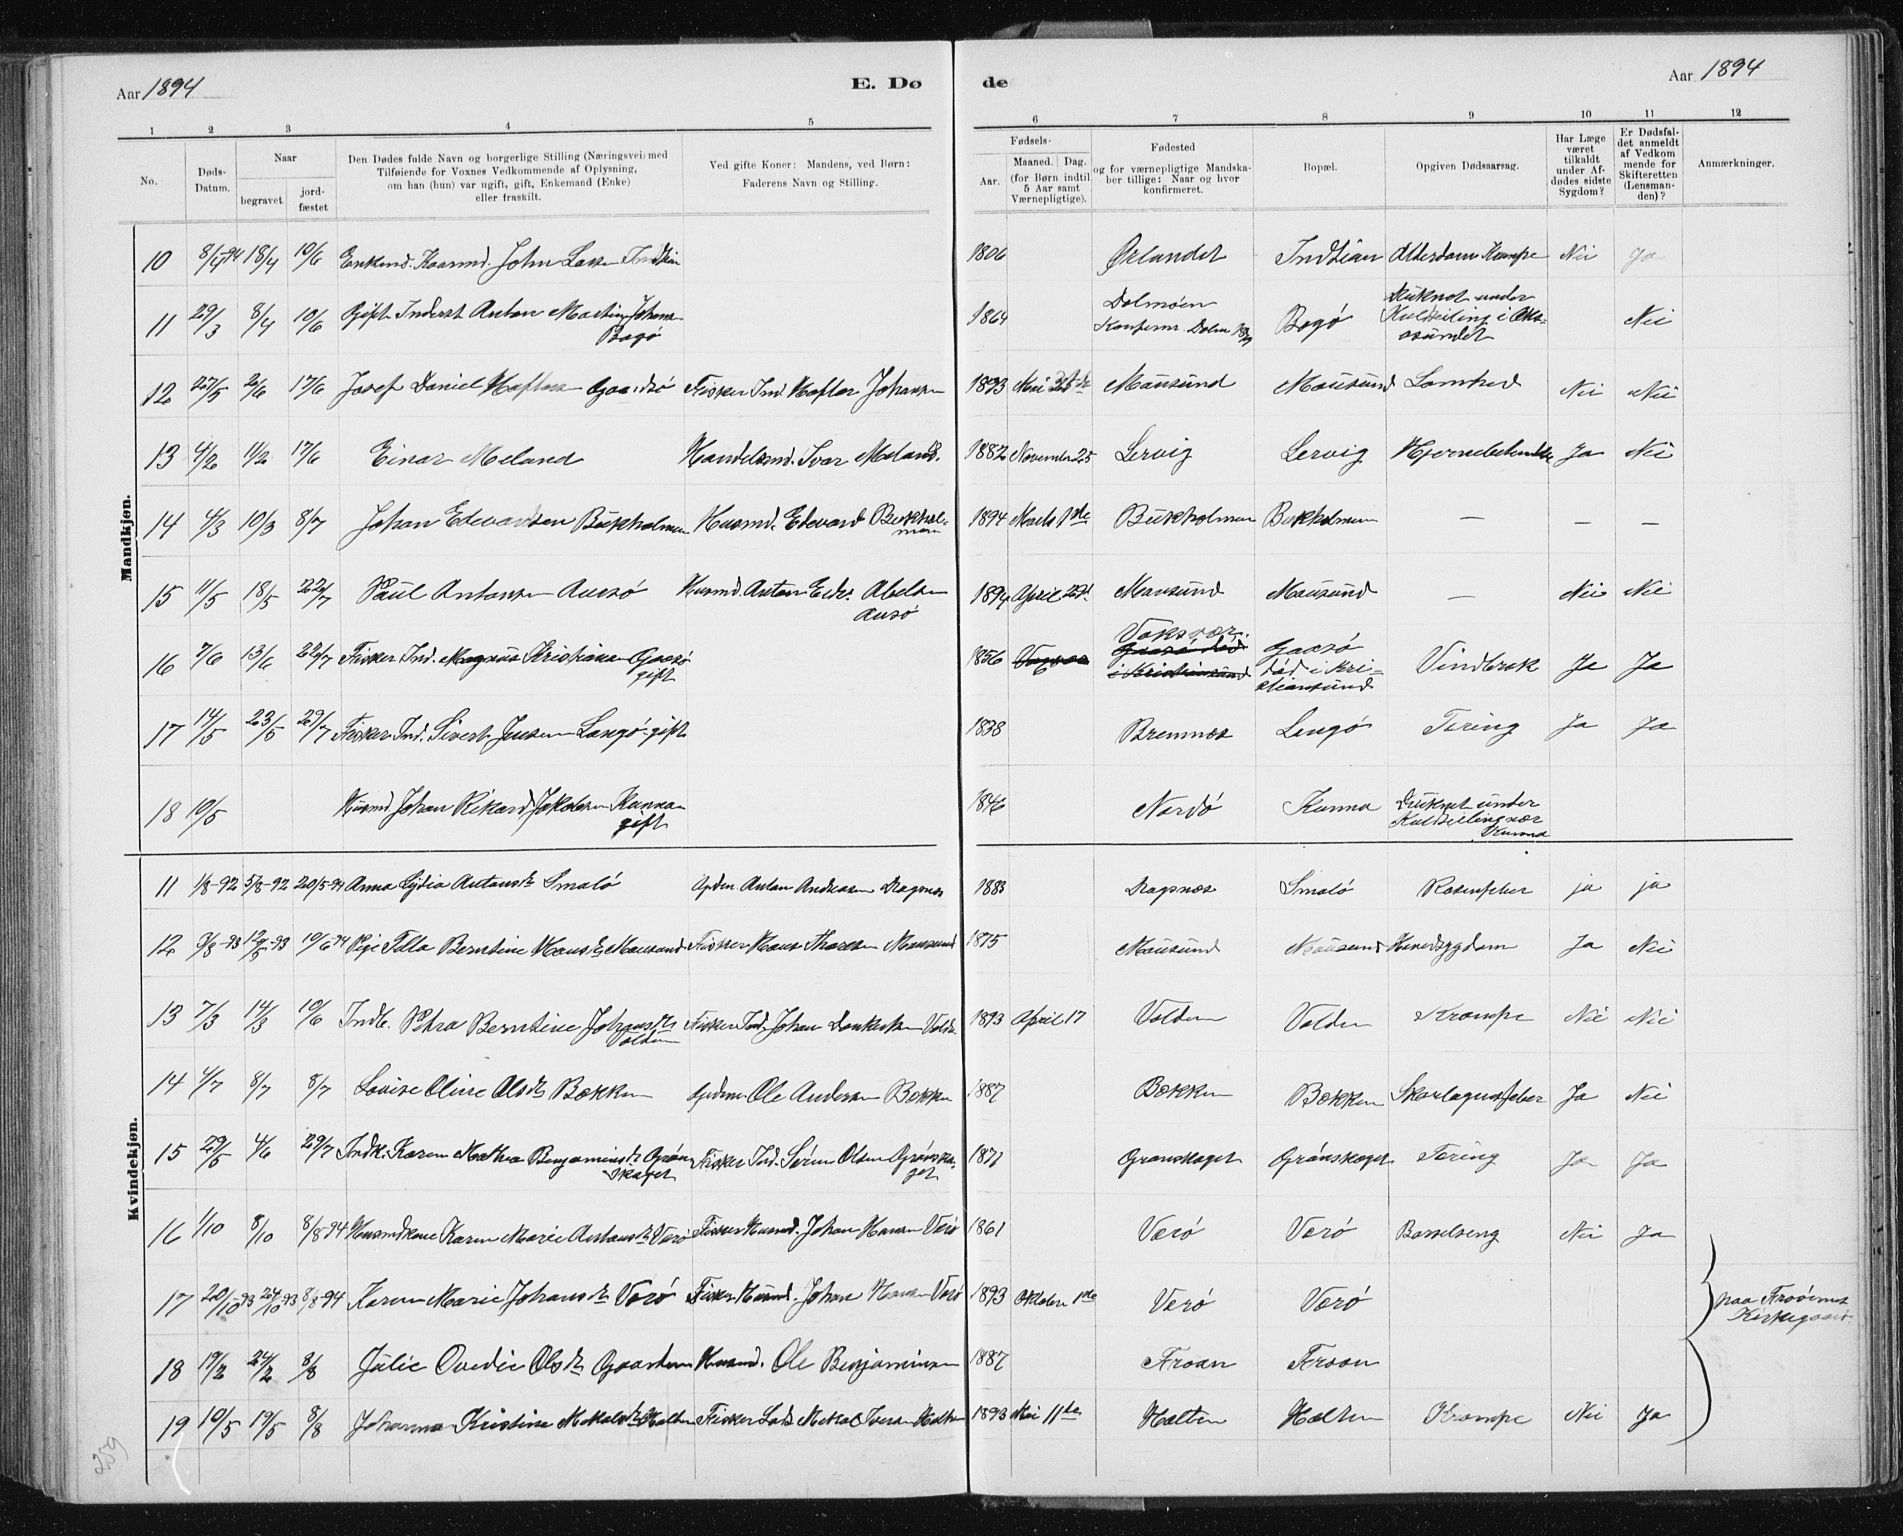 Aar 1894
E. Dø de
Aar 1894
1 2 3 4 5 6 7 8 9 10 11 12
No.
Døds-
Datum.
Naar
begravet
jord-
fæstet
Den Dødes fulde Navn og borgerlige Stilling (Næringsvei) med
Tilføiende for Voxnes Vedkommende af Oplysning,
om han (hun) var ugift, gift, Enkemand (Enke)
eller fraskilt.
Ved gifte Koner: Mandens, ved Børn:
Faderens Navn og Stilling.
Fødsels-
Aar.
Maaned. Dag.
(for Børn indtil
5 Aar samt
Værnepligtige).
Fødested
og for værnepligtige Mandska-
ber tillige: Naar og hvor
konfirmeret.
Bopæl.
Opgiven Dødsaarsag.
Har Læge
været
tilkaldt
under Af-
dødes sidste
Sygdom?
Er Dødsfal-
det anmeldt
af Vedkom
mende for
Skifteretten
(Lensman-
den)?
Anmærkninger.
Mandkjøn.
10 8/4-94 18/4 10/6 Enkemd. Kaarmd. John Indtian 1806 Ørlandet Indtian Alderdom Krampe Nei Ja
11 29/3 8/4 10/6 Gift Inderst Anton Martin Johans. Bogø 1864 Dolmøen Konfirm. Dolm Bogø Druknet under Kulseiling i sundet Nei
12 27/5 2/6 17/6 Josef Daniel Haftor Gaasø Fisker Ind. Haftor Johansen 1893 Mai Mausund Mausund Nei Nei
13 4/2 11/2 17/6 Einar Meland Handelsmd. Ivar Meland. 1882 November 25 Lervig Lervig Hjernebetændelse Ja Nei
14 4/3 10/3 8/7 Johan Edvardsen Bukholmen Husmd. Edvard Bukholmen 1894 Marts 1ste Bukholmen Bukholmen — — —
15 11/5 18/5 22/7 Paul Antonsen Ausø Husmd. Anton Abelsen Ausø 1894 April Mausund Mausund — Nei Nei
16 7/6 13/6 22/7 Fisker Ind. Magnus Kristiansen Gaasø gift 1856 Vaksvær. Gaasø død i Kristiansund Gaasø død i Kri-stiansund Vindbrok Ja Ja
17 14/5 23/5 29/7 Fisker Ind. Sivert Jensen Langø gift 1838 Bremnes Langø Tæring Ja Ja
18 10/5 Husmd. Johan Rikard Jakobsen Kunna gift 1846 Nordø Kunna Druknet under Kulseiling nær Kunna
Kvindekjøn.
11 1/8-92 5/8-92 20/5-94 Anna Lydia Antonsdr. Smalø Anton Andreasen Dragsnes 1883 Dragsnes Smalø Rosenfeber ja ja
12 -93 -93 10/6 94 Pige Berntine Hansdr. Mausund Fisker Hans Thoresen Mausund 1875 Mausund Mausund Ja Nei
13 7/3 14/3 10/6 Indk. Petra Berntine Johansdr. Volden Fisker Ind. Johan Volden 1893 April 17 Volden Volden Krampe Nei Nei
14 4/7 8/7 8/7 Lovise Oline Olsdr. Bekken Ole Andersen Bekken 1887 Bekken Bekken Skarlagensfeber Ja Nei
15 29/5 4/6 29/7 Indk. Karen Mathea Benjaminsdr. Grønskaget Fisker Ind. Søren Olsen Grønskaget 1871 Grønskaget Grønskaget Tæring Ja Ja
16 1/10 8/10 8/8-94 Husmdkone Karen Marie Antonsdr. Værø Fisker Husmd. Johan Hansen Værø 1861 Værø Værø Barselseng Nei Ja
17 20/10-93 24/10-93 8/8-94 Karen Marie Johansdr. Værø Fisker Husmd. Johan Hansen Værø 1893 Oktober 1ste Værø Værø
paa Frøøernes Kirkegaard.
18 19/2 24/2 8/8 Julie Ovedie Olsdr. Gaarten Husmd. Ole Benjaminsen 1887 Froan Froan
19 10/5 19/5 8/8 Johanna Kristine Mekalsdr. Halten Fisker Lods Mekal Iversen Halten 1893 Mai 11te Halten Halten Krampe Nei Ja
259